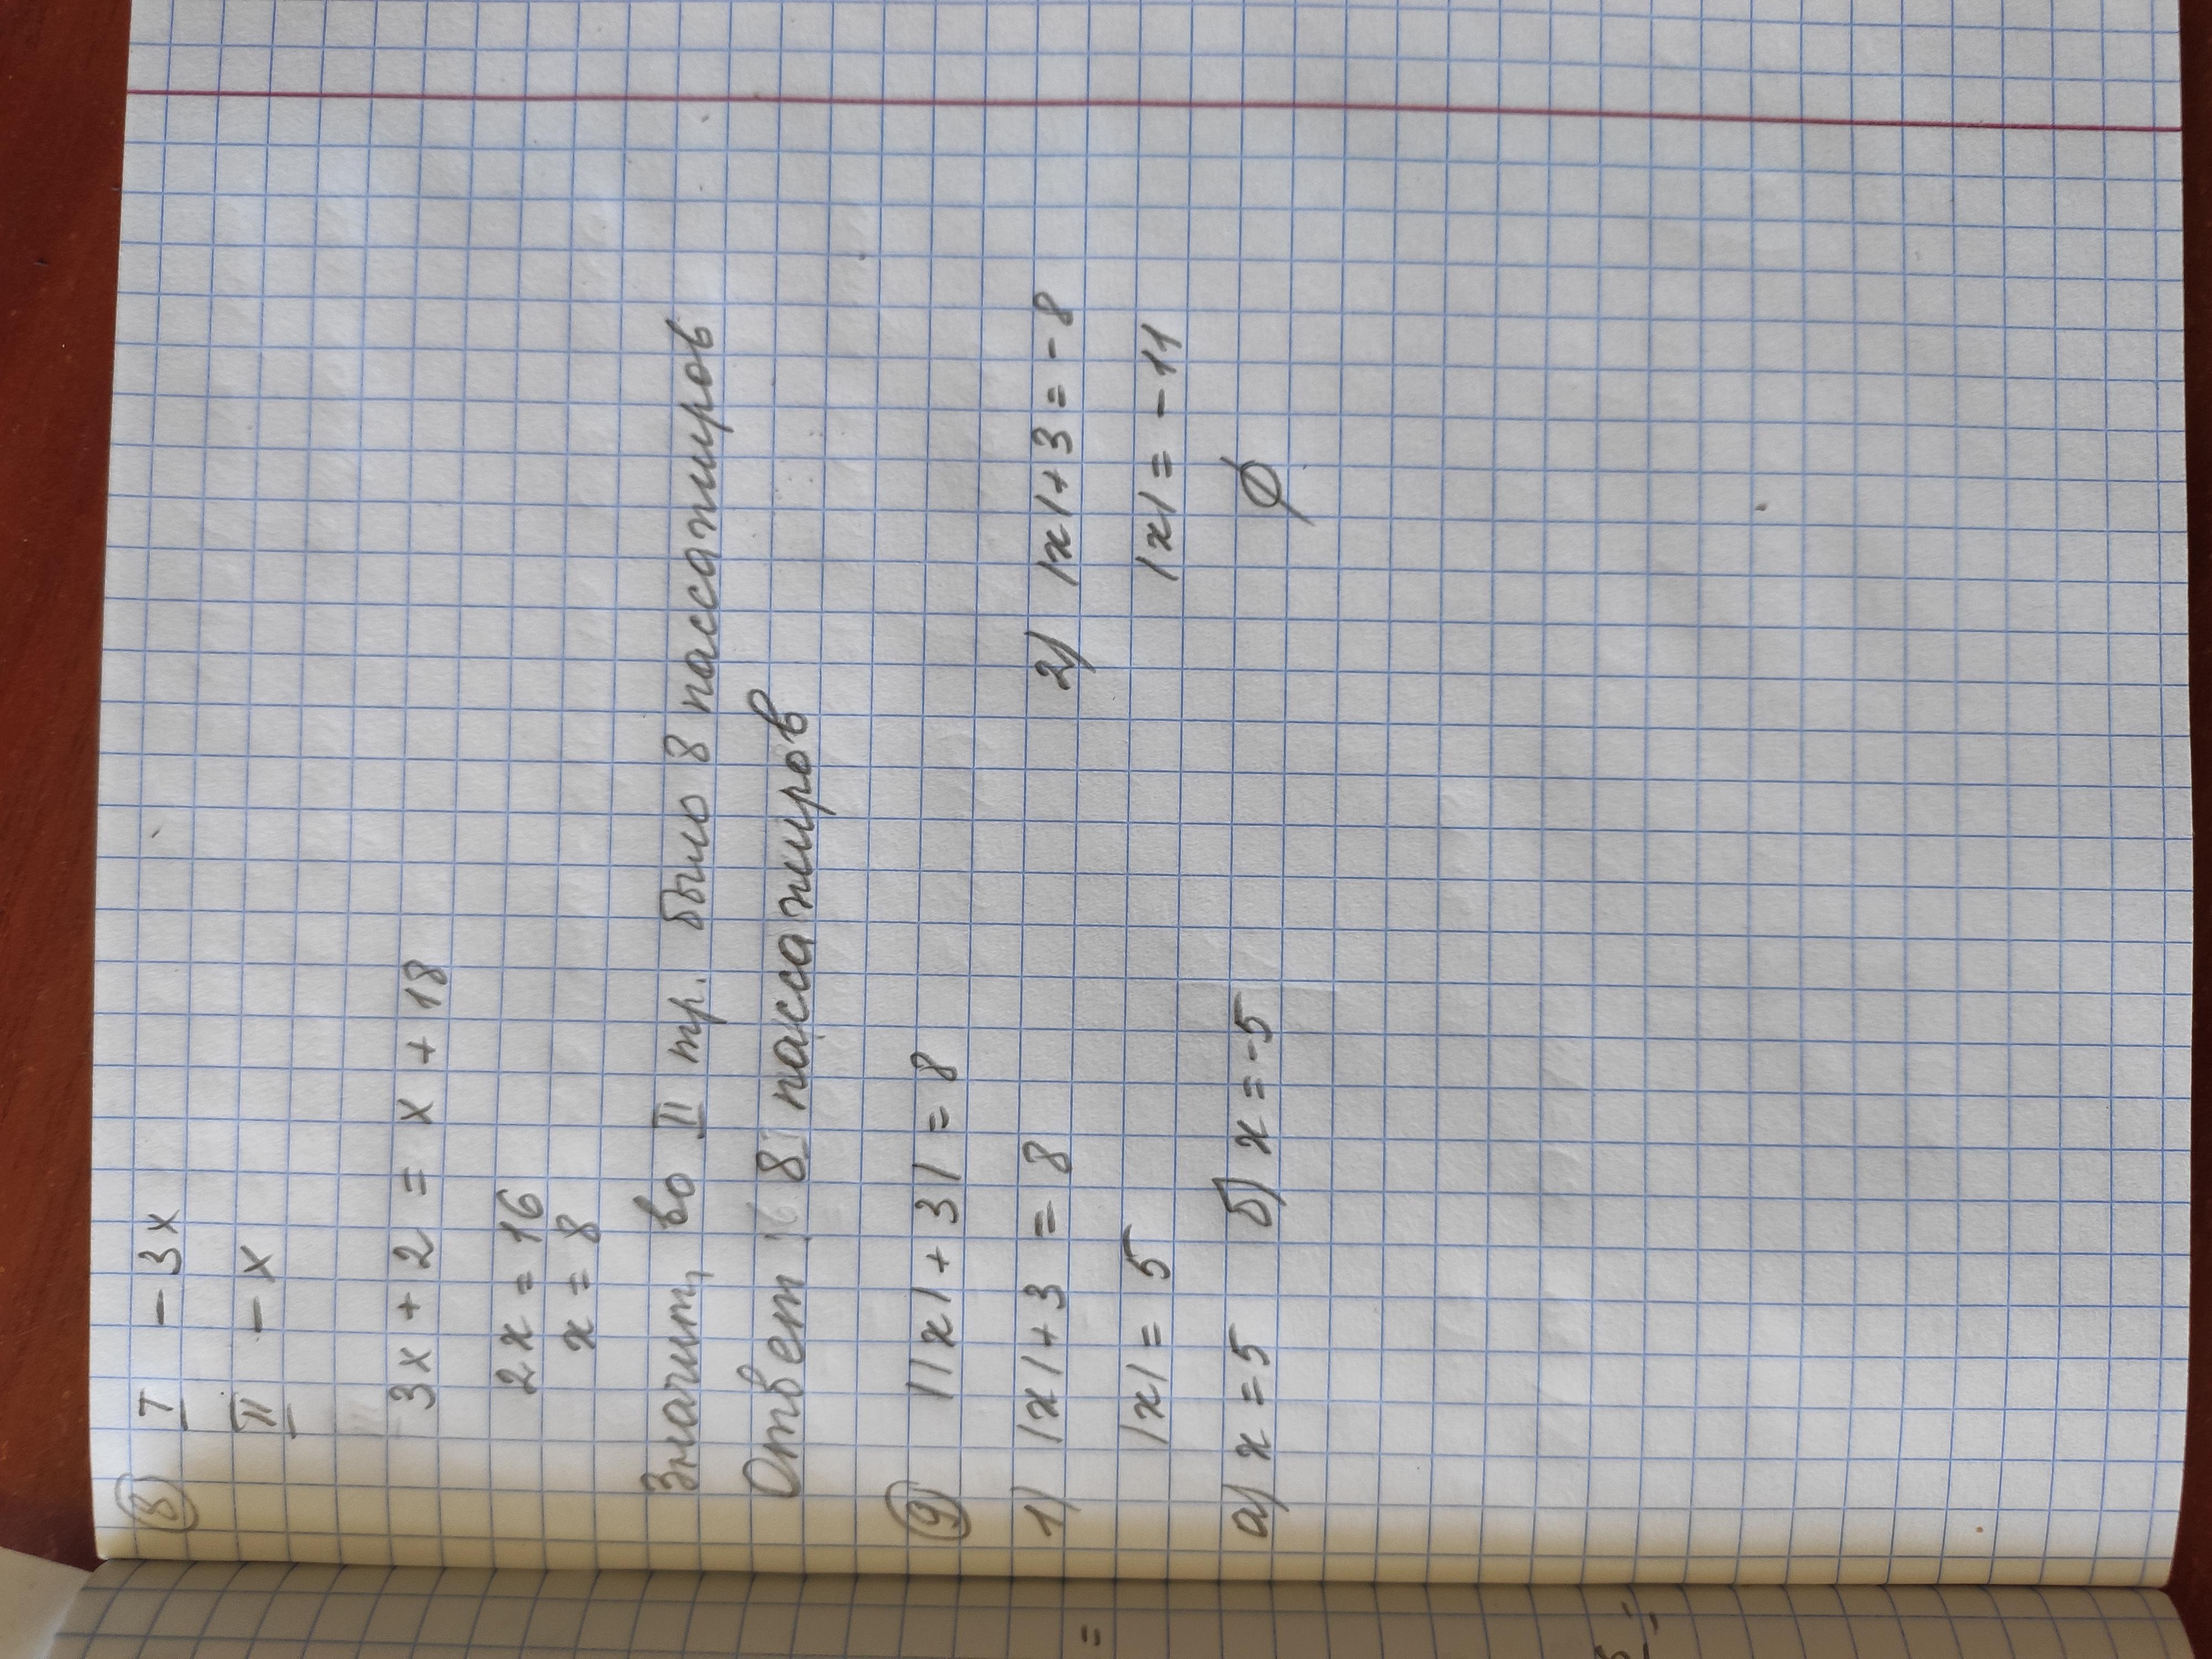 8 I – 3x
II – x
3x + 2 = x + 18
2x = 16
x = 8
Значит, во II тр. было 8 пассажиров
Ответ 8 пассажиров
9 ||x|+3|=8
1) |x|+3 = 8 2) |x|+3=-8
|x|= 5 |x|= -11
а) x=5 б) x=-5 ∅